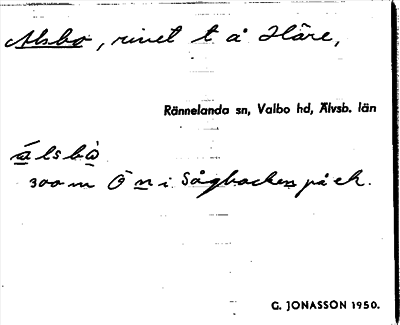 Alsbo, rivet t å Håre,
Rännelanda sn, Valbo hd, Älvsb. län
álsbò
300 m Ö n i Sågbacken på ek.
G. JONASSON 1950.